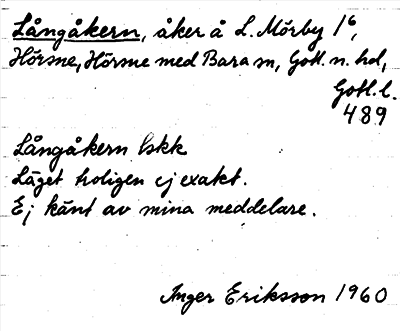 Långåkern, åker å L. Mörby 1⁶,
Hörsne, Hörsne med Bara sn, Gotl. n. hd,
Gotl. l.
489
Långåkern lskk
Läget troligen ej exakt.
Ej känt av mina meddelare.
Inger Eriksson 1960